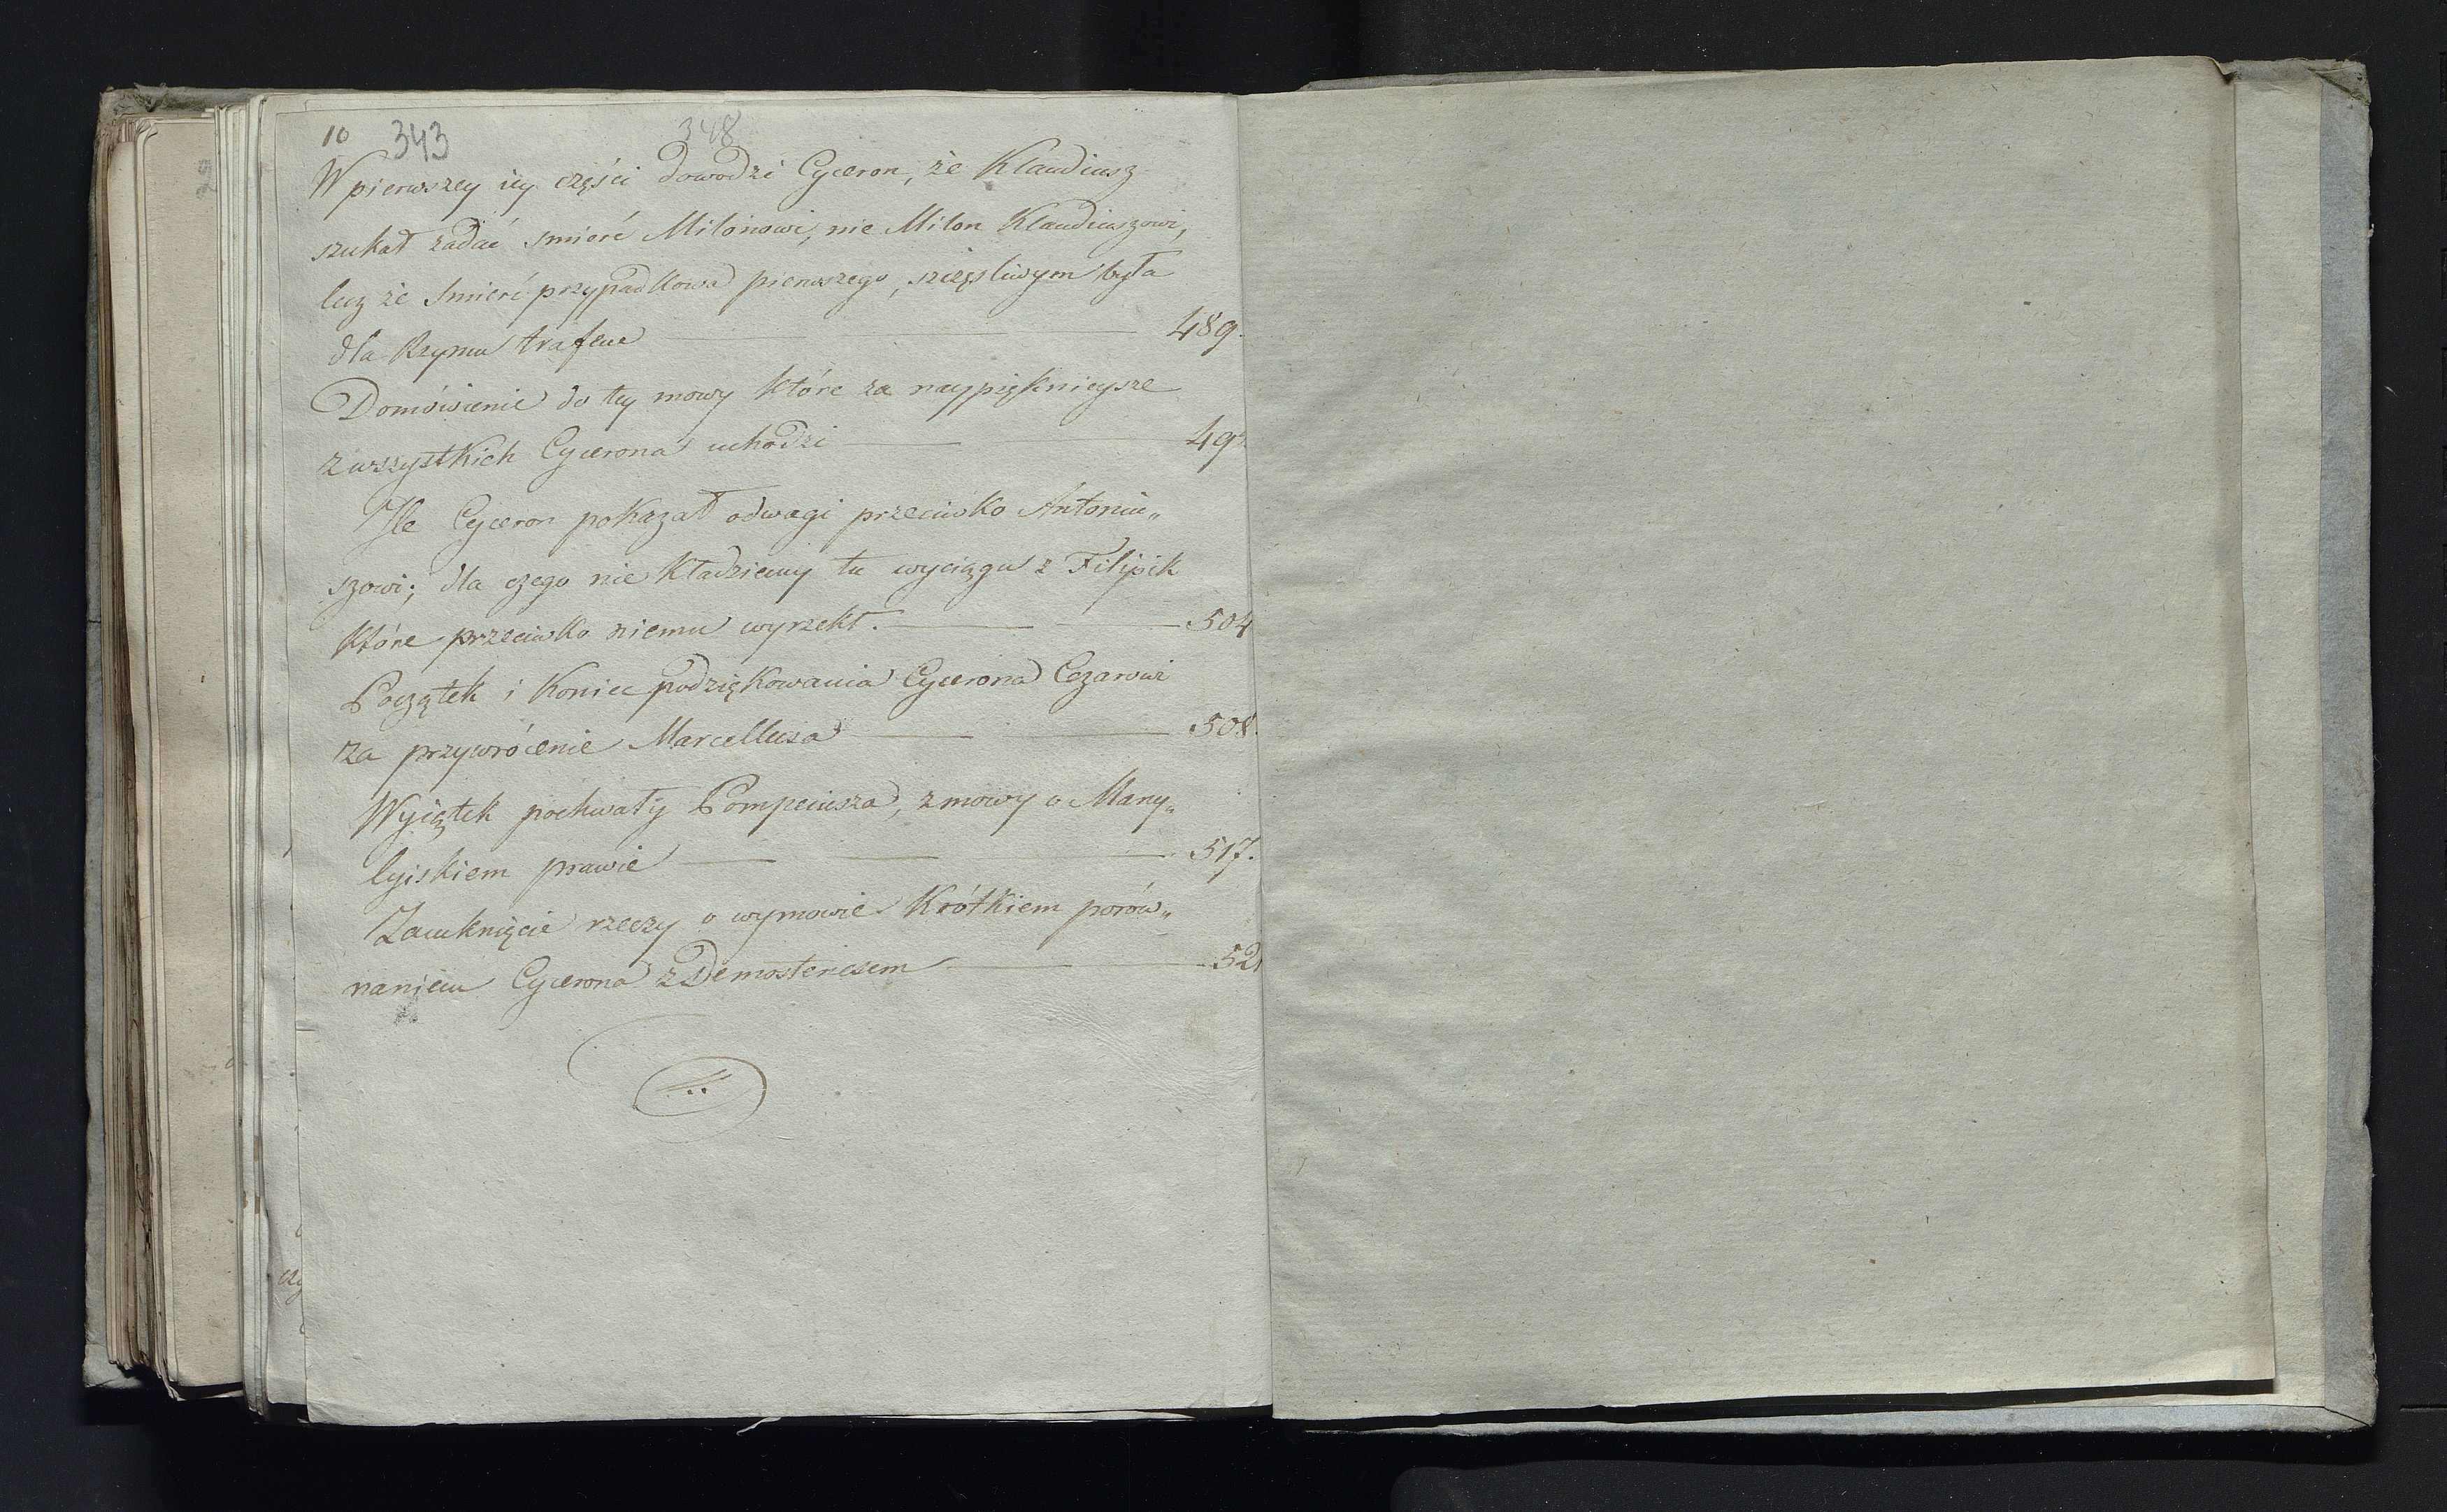 10 343 348
W pierwszey iey części dowodzi Cyceron, że Klaudiusz
szukał zadać smierć Milonowi, nie Milon Klaudiuszowi,
lecz że smierć przypadkowa pierwszego, szczęsliwym była
dla Rzymu trafem 489.
Domówienie do tey mowy które za naypięknieysze
z wszystkich Cycerona uchodzi 49
Ile Cyceron pokazał odwagi przeciwko Antoniu„
szowi; dla czego nie kładziemy tu wyciągu z Filipik
które przeciwko niemu wyrzekł. 504
Początek i koniec podziękowania Cycerona Cezarowi
za przywrócenie Marcellusa 508.
Wyiątek pochwały Pompeiusza, z mowy o Many„
lyiskiem prawie 517.
Zamknięcie rzeczy o wymowie krótkiem porów„
naniem Cycerona z Demostenesem 521